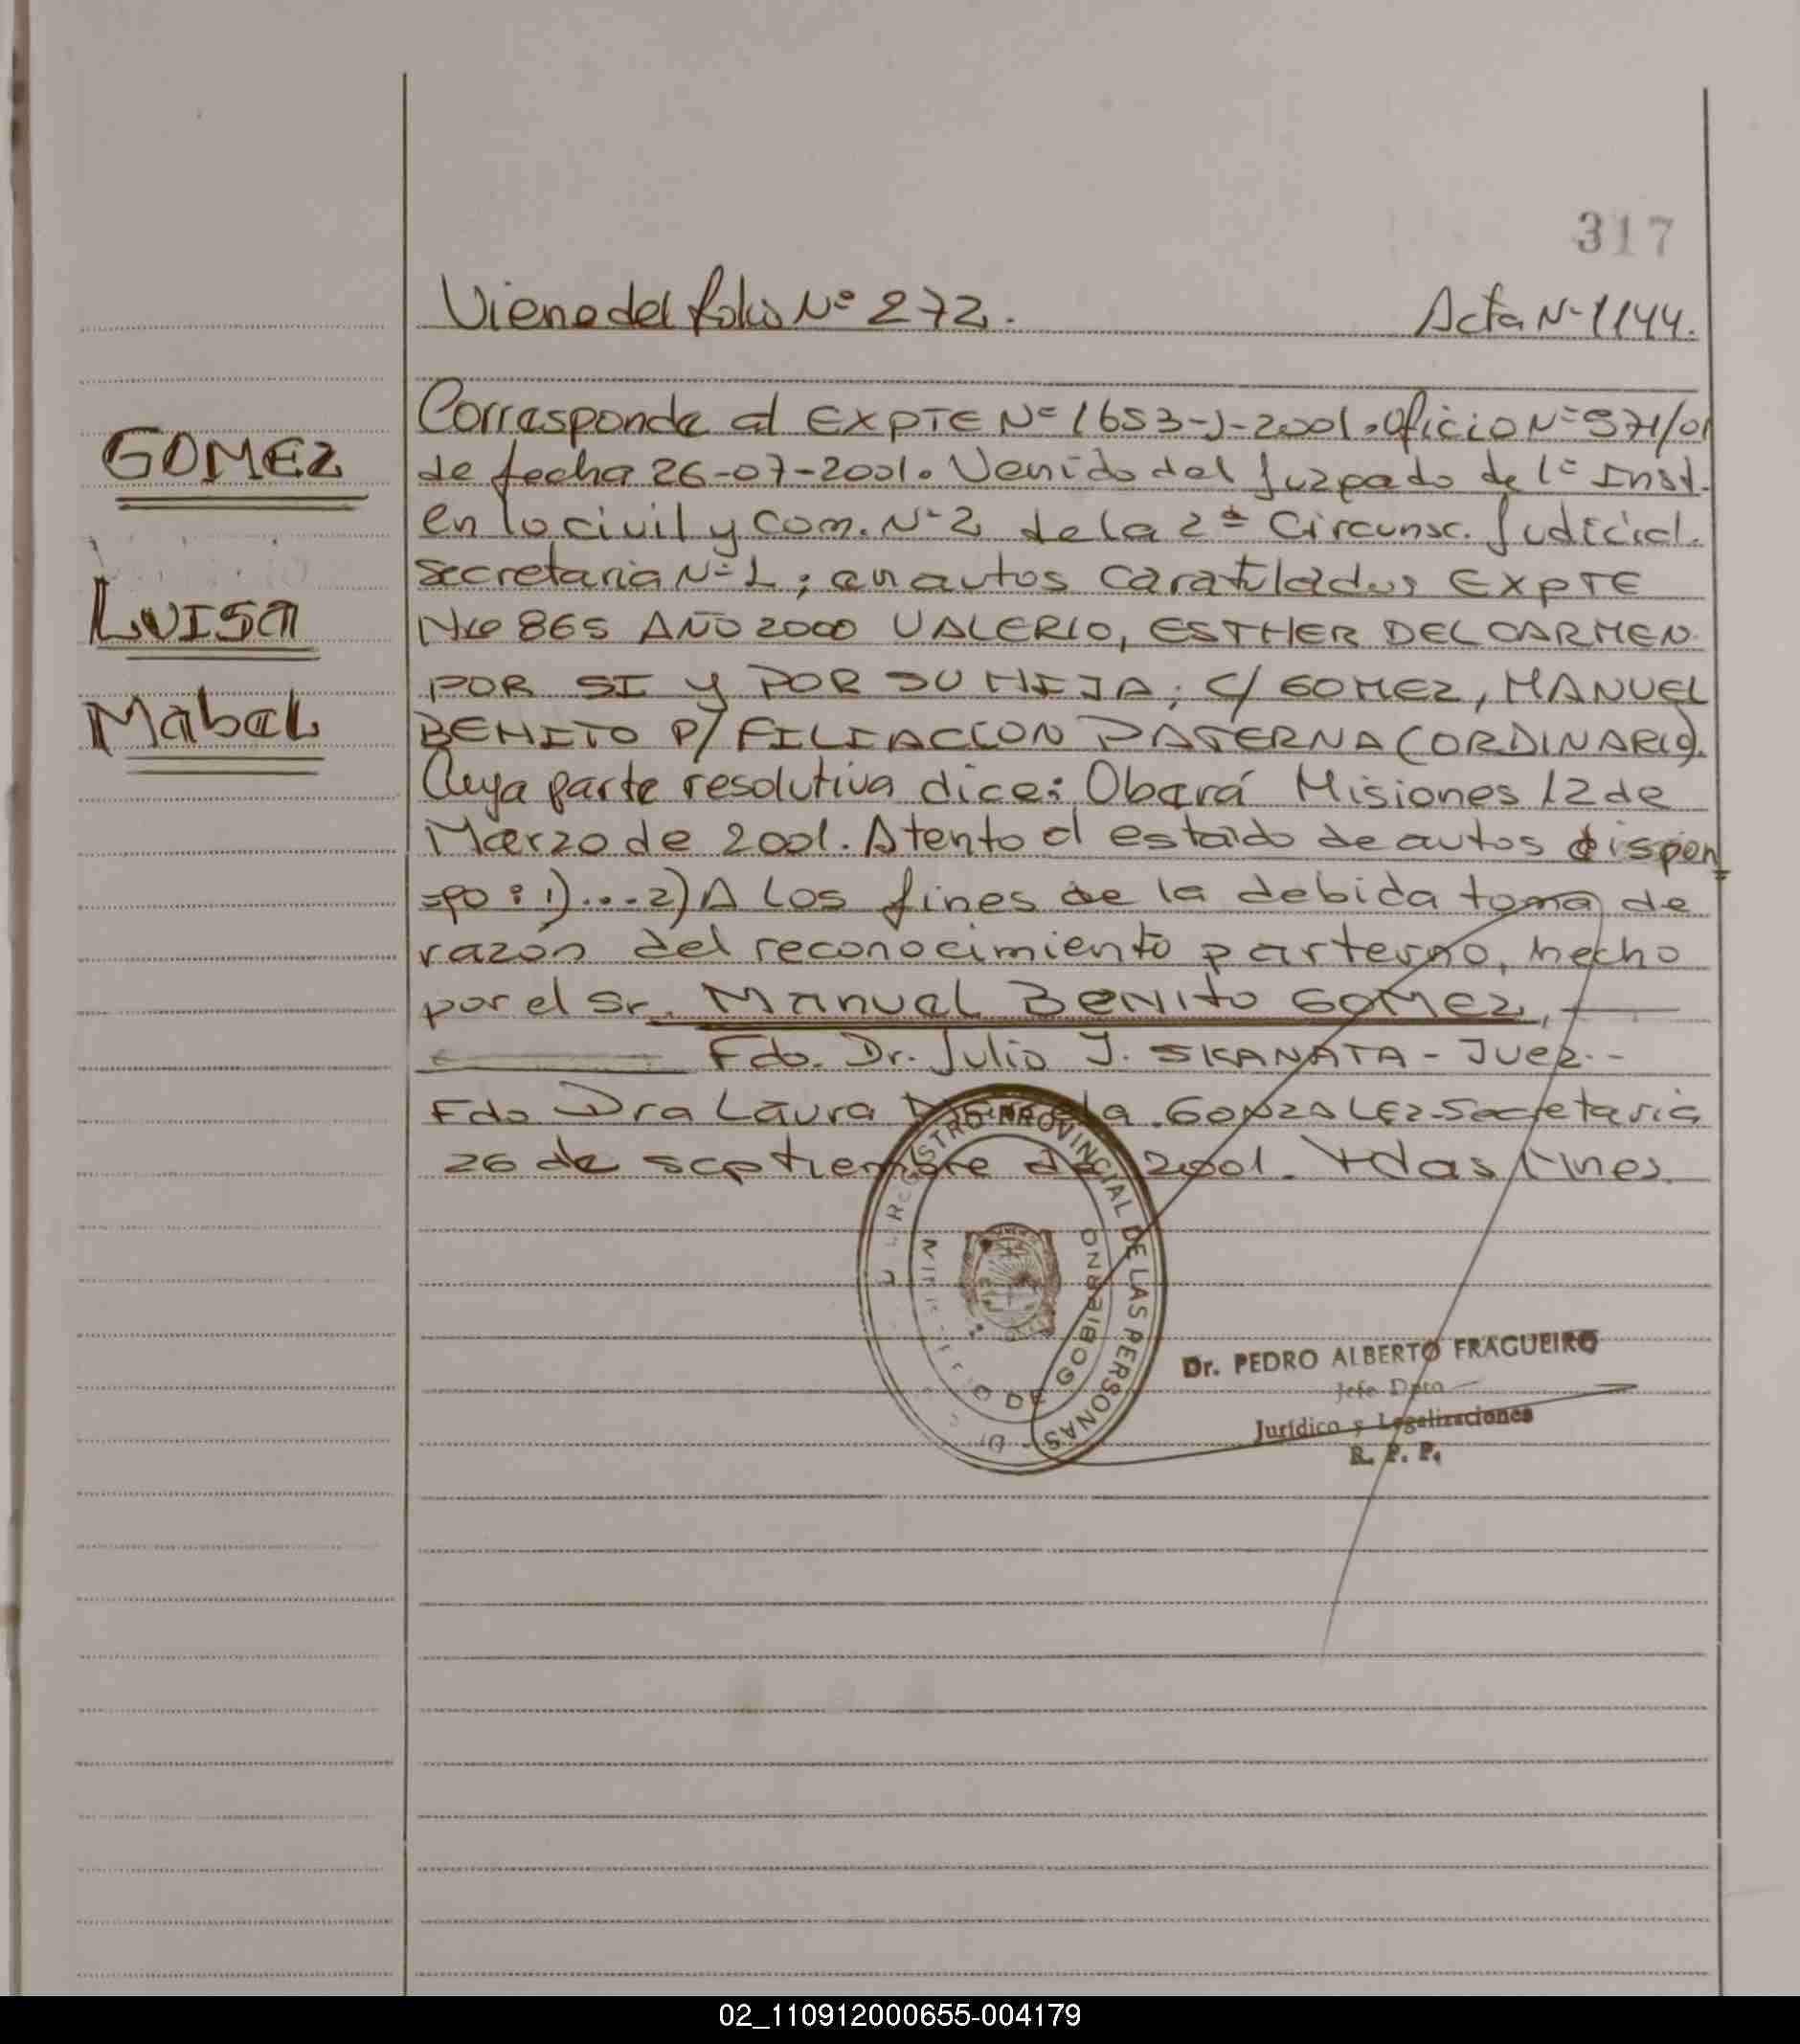 317
Viene del folio Nº 272.
Acta Nº 1144.
GOMEZ
LUISA
MabeL
Corresponde al EXPTE Nº 1653-J-2001. Oficio Nº 971/01
de fecha 26-07-2001. Venido del Juzgado de 1º Inst.
en lo civil y Com. Nº 2 de la 2ª Circunsc. Judicial.
Secretaria Nº 1; en autos caratulados EXPTE
Nro 865 AÑO 2000 VALERIO, ESTHER DEL CARMEN
POR SI Y POR SU HIJA; C/ GOMEZ, MANUEL
BENITO P/ FILIACCION PATERNA (ORDINARIO).
Cuya parte resolutiva dice: Oberá Misiones 12 de
Marzo de 2001. Atento al estado de autos dispon
=go: 1)....2) A Los fines de la debida toma de
razón del reconocimiento parterno, hecho
por el Sr. Manuel BENITO GOMEZ,
Fdo. Dr. Julio J. SKANATA - Juez.-
Fdo Dra Laura GONZALEZ-Secretaria
26 de septiembre de 2001.
REGISTRO PROVINCIAL DE LAS PERSONAS
DE GOBIERNO
Dr. PEDRO ALBERTO FRAGUEIRO
Jefe Dpto
Jurídico y Legalizaciones
R. P. P.
02_110912000655-004179